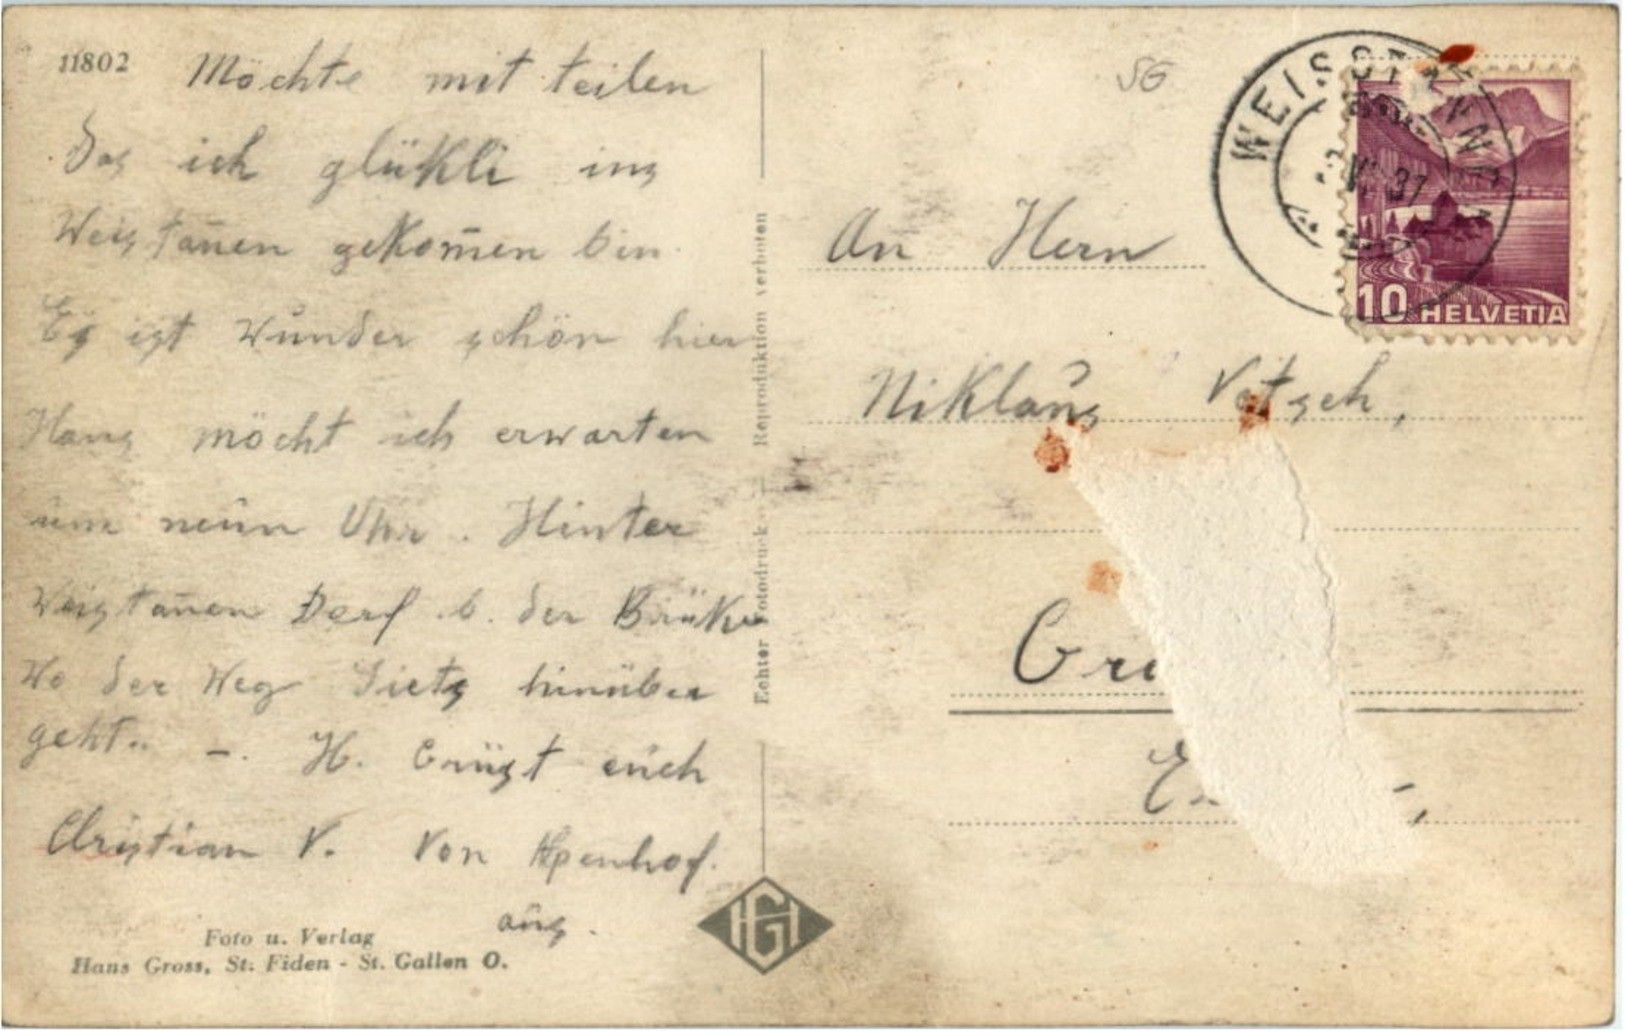 11802
Möchte mit teilen
Das ich glükli ins
Weistan̄en gekom̄en bin.
Es ist wunder schön hier
Hans möcht ich erwarten
um neun Uhr. Hinter
Weistan̄en Derf b. der Brüke
Wo der Weg hinüber
geht.. –. H. Grüst euch
Christian V. Von Alpenhof.
aus.
Foto u. Verlag
Hans Gross, St. Fiden - St. Gallen O.
Echter Fotodruck - Reproduktion verboten
HG
SG
WEISSTANNEN
37
10 HELVETIA
An Hern
Niklaus Vetsch,